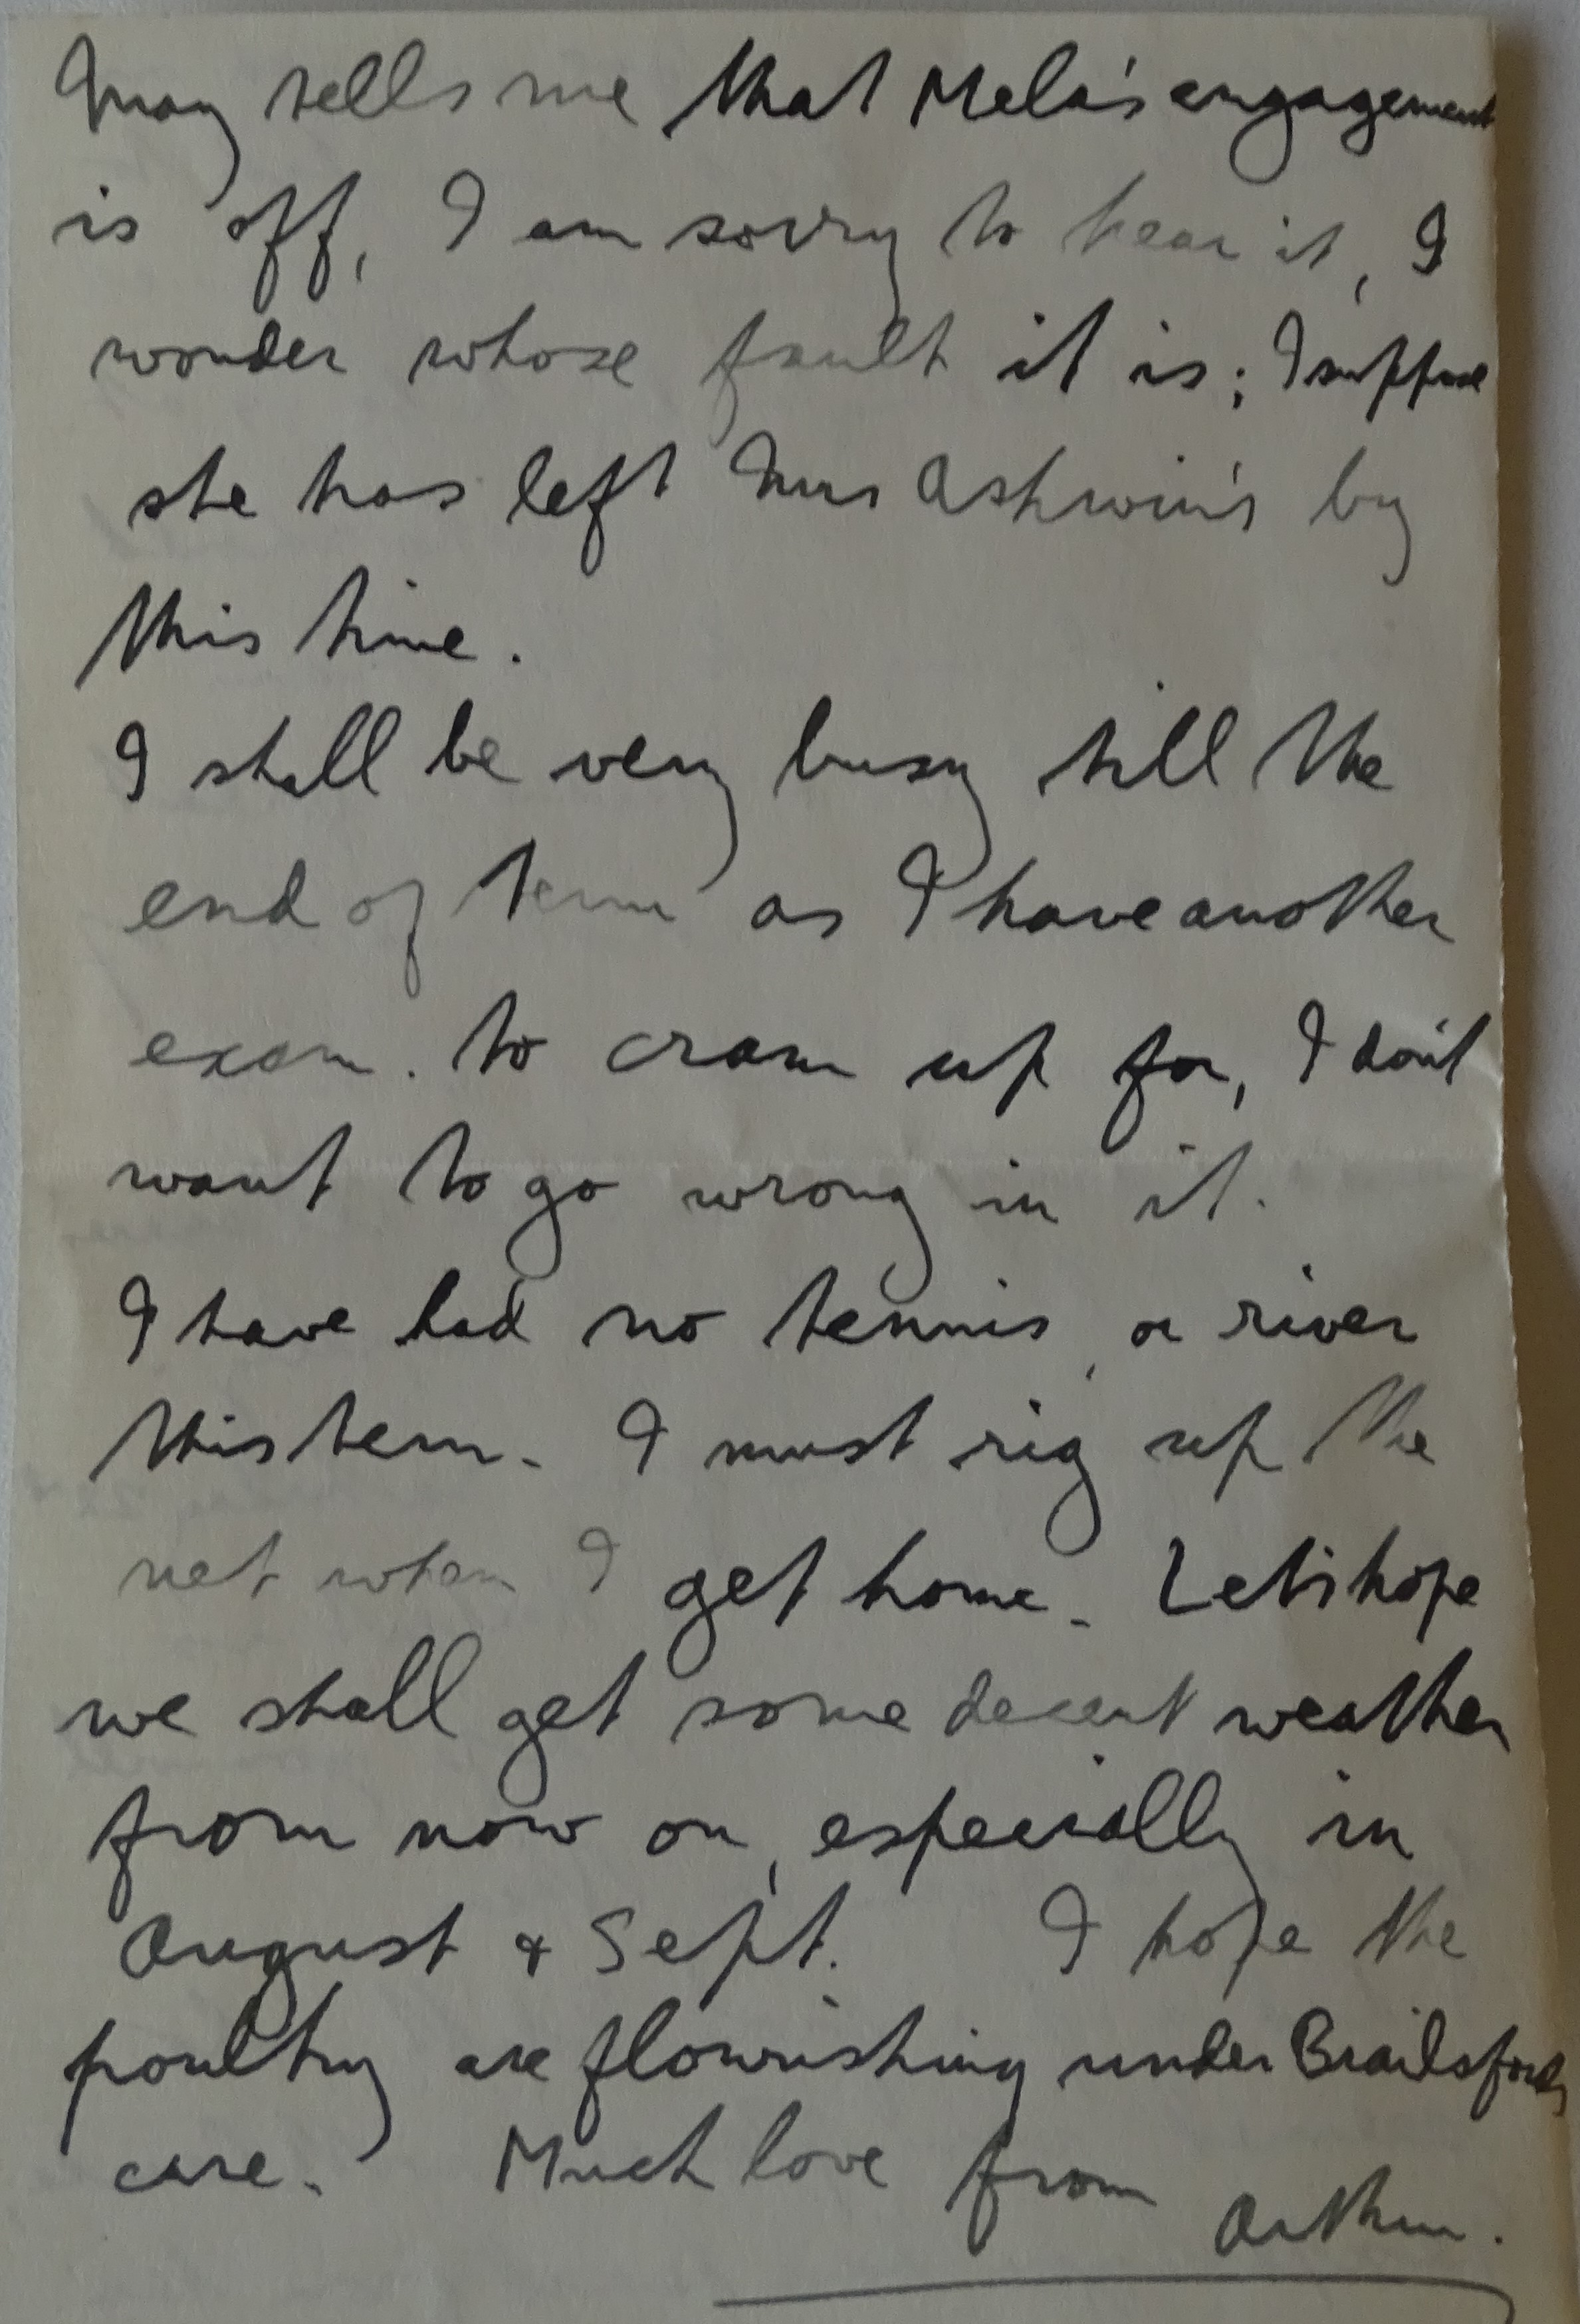 May tells me that Mela's engagement
is off, I am sorry to hear it, I
wonder whose fault it is; I suppose
she has left Mrs Ashwin's by
this time.
I shall be very busy till the
end of term as I have another
exam. to cram up for, I don't
want to go wrong in it.
I have had no tennis, or river
this term. I must rig up the
net when I get home. Let's hope
we shall get some decent weather
from now on, especially in
August & Sept. I hope the
poultry are flourishing under Brailsfords
care. Much love from
Arthur.